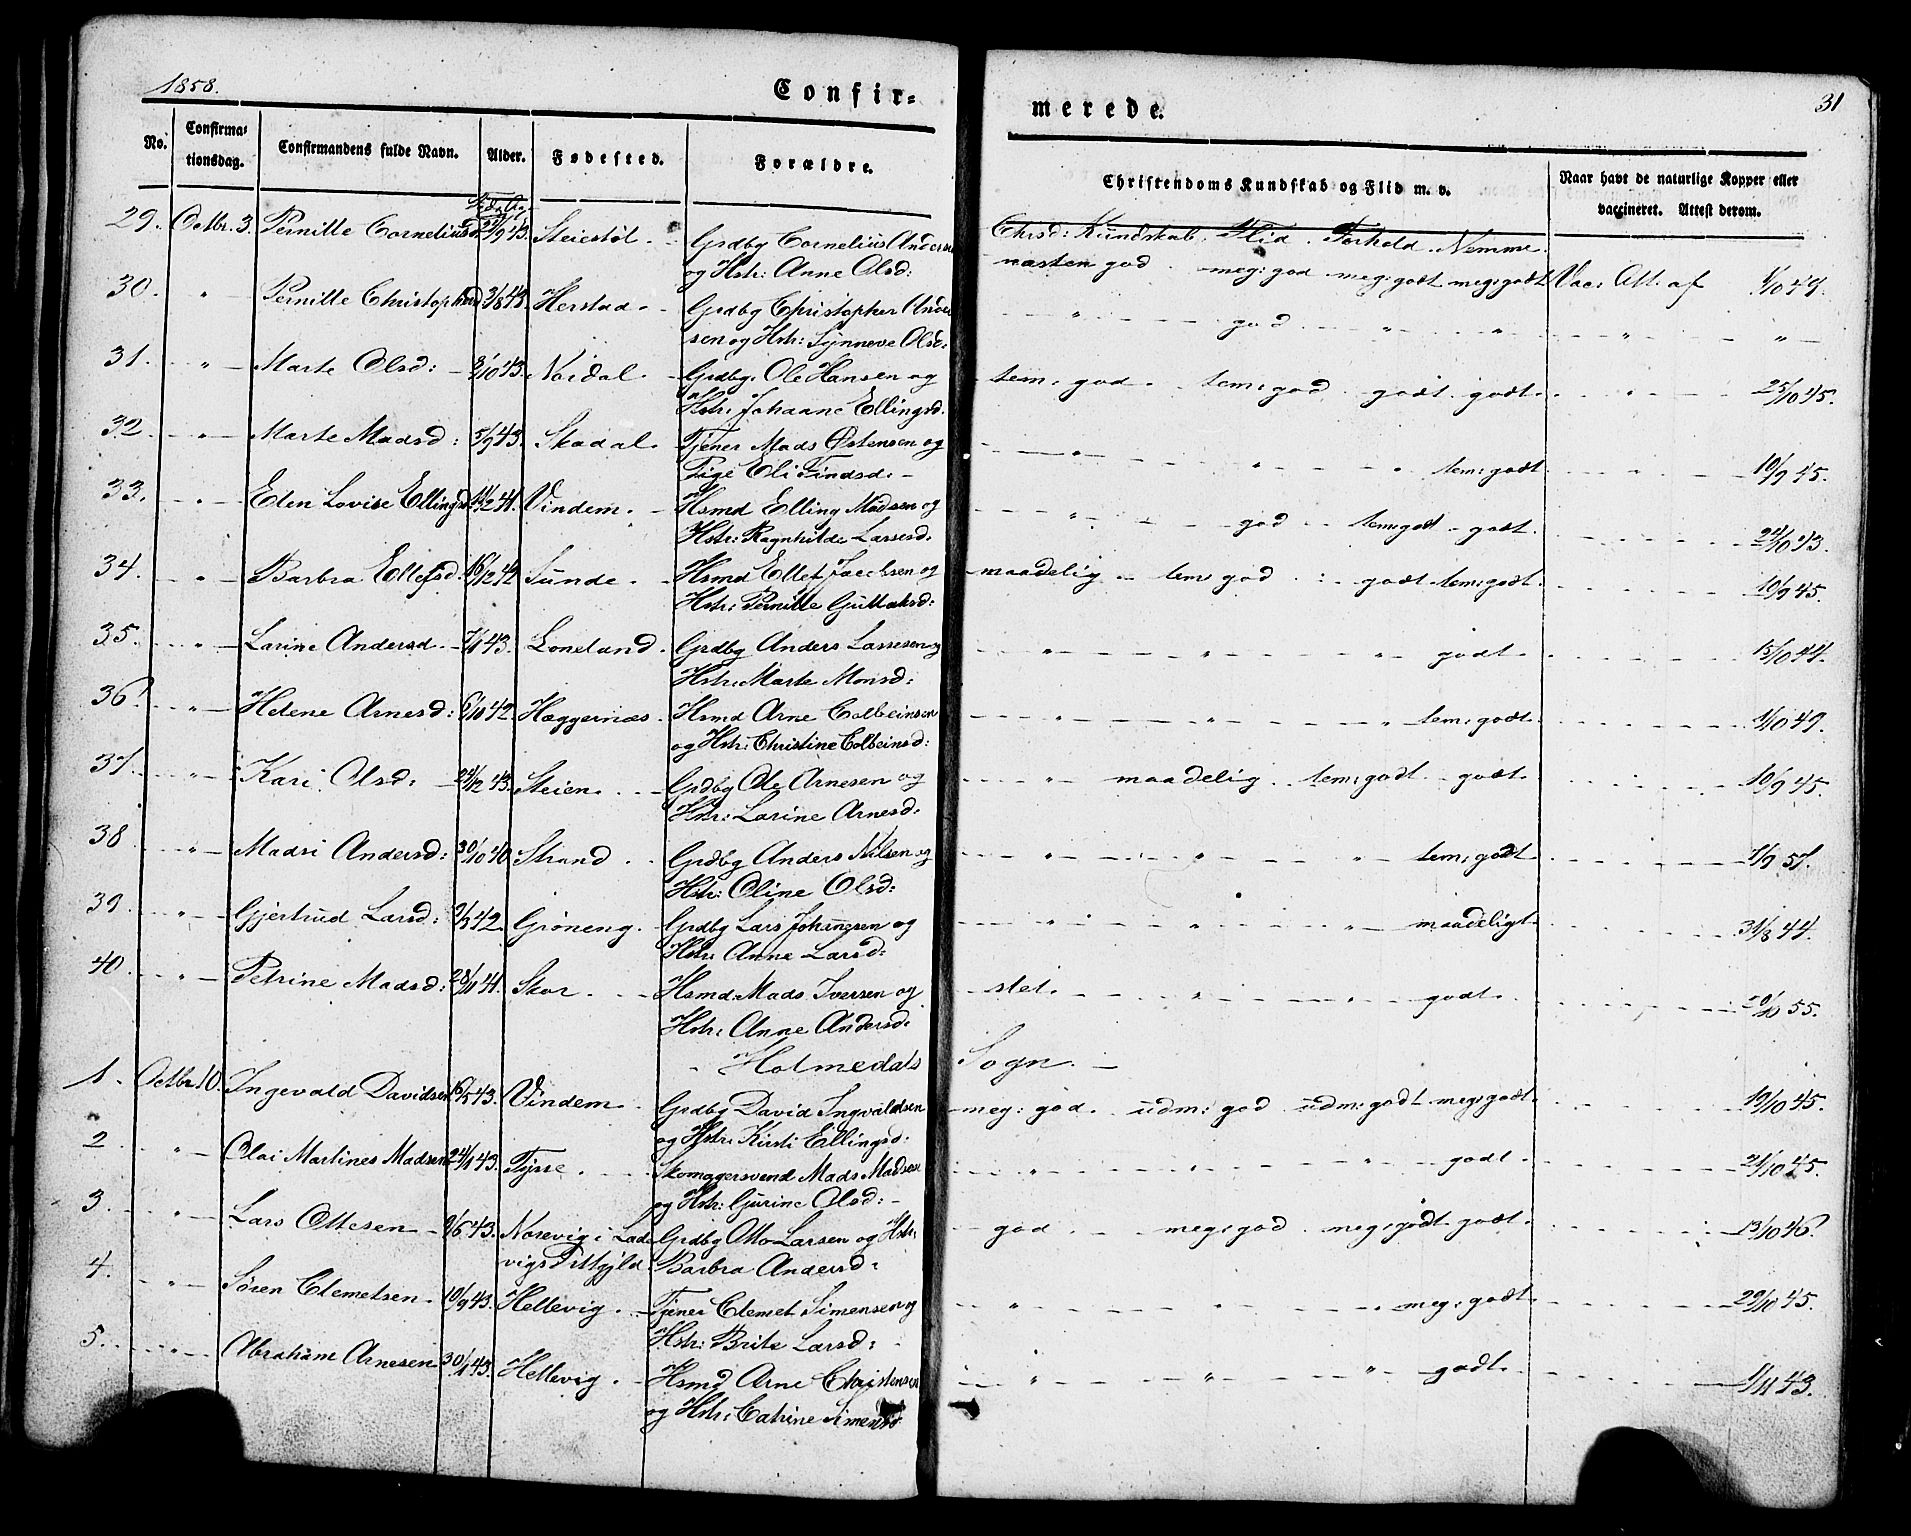 1858.
Confir-
merede.
31
No.
Confirma-
tionsdag.
Confirmandens fulde Navn.
Alder.
Fødested.
Forældre.
Christendoms Kundskab og Flid m. v.
Naar havt de naturlige Kopper eller
vaccineret. Attest derom.
Chrsd: Kundskab. Flid. Forhold. Nemme.
29. Octbr. 3. Pernille Corneliusd. 43. Steiestøl. Grdbg Cornelius Andersen
og Hstr: Anne Olsd: næsten god. meg: god meg: godt meg: godt Vac: Att. af
30. " Pernille Christophersd 3/8 43. Herstad. Grdbg Christopher Ander
sen og Hstr: Synneve Olsd: " god " " " "
31. " Marte Olsd: 8/10 43. Nordal. Grdbg. Ole Hansen og
Hstr: Johanne Ellingsd. tem: god. tem: god godt godt. " 25/10 45.
32. " Marte Madsd: 5/9 43. Skadal. Tjener Mads Østensen og
Pige Eli Findsd. " " " tem: godt " 10/9 45.
33. " Elen Lovise Ellingsd 41. Vindem. Hsmd Elling Madsen og
Hstr: Ragnhilde Larsesd. " god tem: godt godt.
34. " Barbra Ellefsd. 16/12 42 Sunde. Hsmd Ellef Jacobsen og
Hstr: Pernille Guttaksd: maadelig tem: god : godt tem: godt. 10/9 45.
35. " Larine Andersd. 7/1 43. Loneland. Grdbg Anders Lassesen og
Hstr: Marte Monsd: " " " godt. 15/10 44.
36. " Helene Arnesd: 6/10 42. Hæggernæs. Hsmd Arne Colbeinsen
og Hstr: Christine Colbeinsd: " " " tem: godt. 1/10 49.
37. " Kari Olsd: 24/12 43. Steien. Grdbg Ole Arnesen og
Hstr: Larine Arnesd: " maadelig. tem: godt godt. 10/9 45.
38 " Madsi Andersd: 30/10 40. Strand. Grdbg Anders Nilsen og
Hstr: Oline Olsd: " " " tem: godt 7/9 57.
39. " Gjertrud Larsd: 42. Grøneng. Grdbg Lars Johannesen og
Hstr: Anne Larsd: " " " maadeligt 31/8 44.
40. " Petrine Madsd: 28/11 41. Skor. Hsmd. Mads Iversen og
Hstr: Anne Andersd: slet. " " godt. 55.
Holmedals Sogn.
1. Octbr. 10. Ingevald Davidsen 16/5 43. Vindem. Grdbg David Ingvaldsen
og Hstr: Kirsti Ellingsd: meg: god. udm: god udm: godt meg: godt. 19/10 45.
2 " Olai Martines Madsen 24/1 43. Tysse. Skomagersvend Mads Madsen
og Hstr: Gurine Olsd: " " " godt. 21/10 45.
3. " Lars Ottesen 9/6 43. Norevig i Lad- Grdbg Otto Larsen og Hstr:
vigs Prstgjld. Barbra Andersd: god. meg: god meg: godt godt. 13/10 46.
4. " Søren Clemetsen. 10/9 43. Hellevig. Tjener Clemet Simensen og
Hstr: Brite Larsd: " " " meg: godt. 29/10 45.
5. " Abraham Arnesen 30/1 43. Hellevig. Hsmd Arne Christensen
og Hstr: Catrine Simensd. " " " godt. 1/11 43.